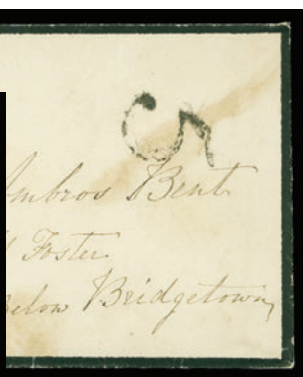 5
Ambros Bent
Foster
Below Bridgetown,